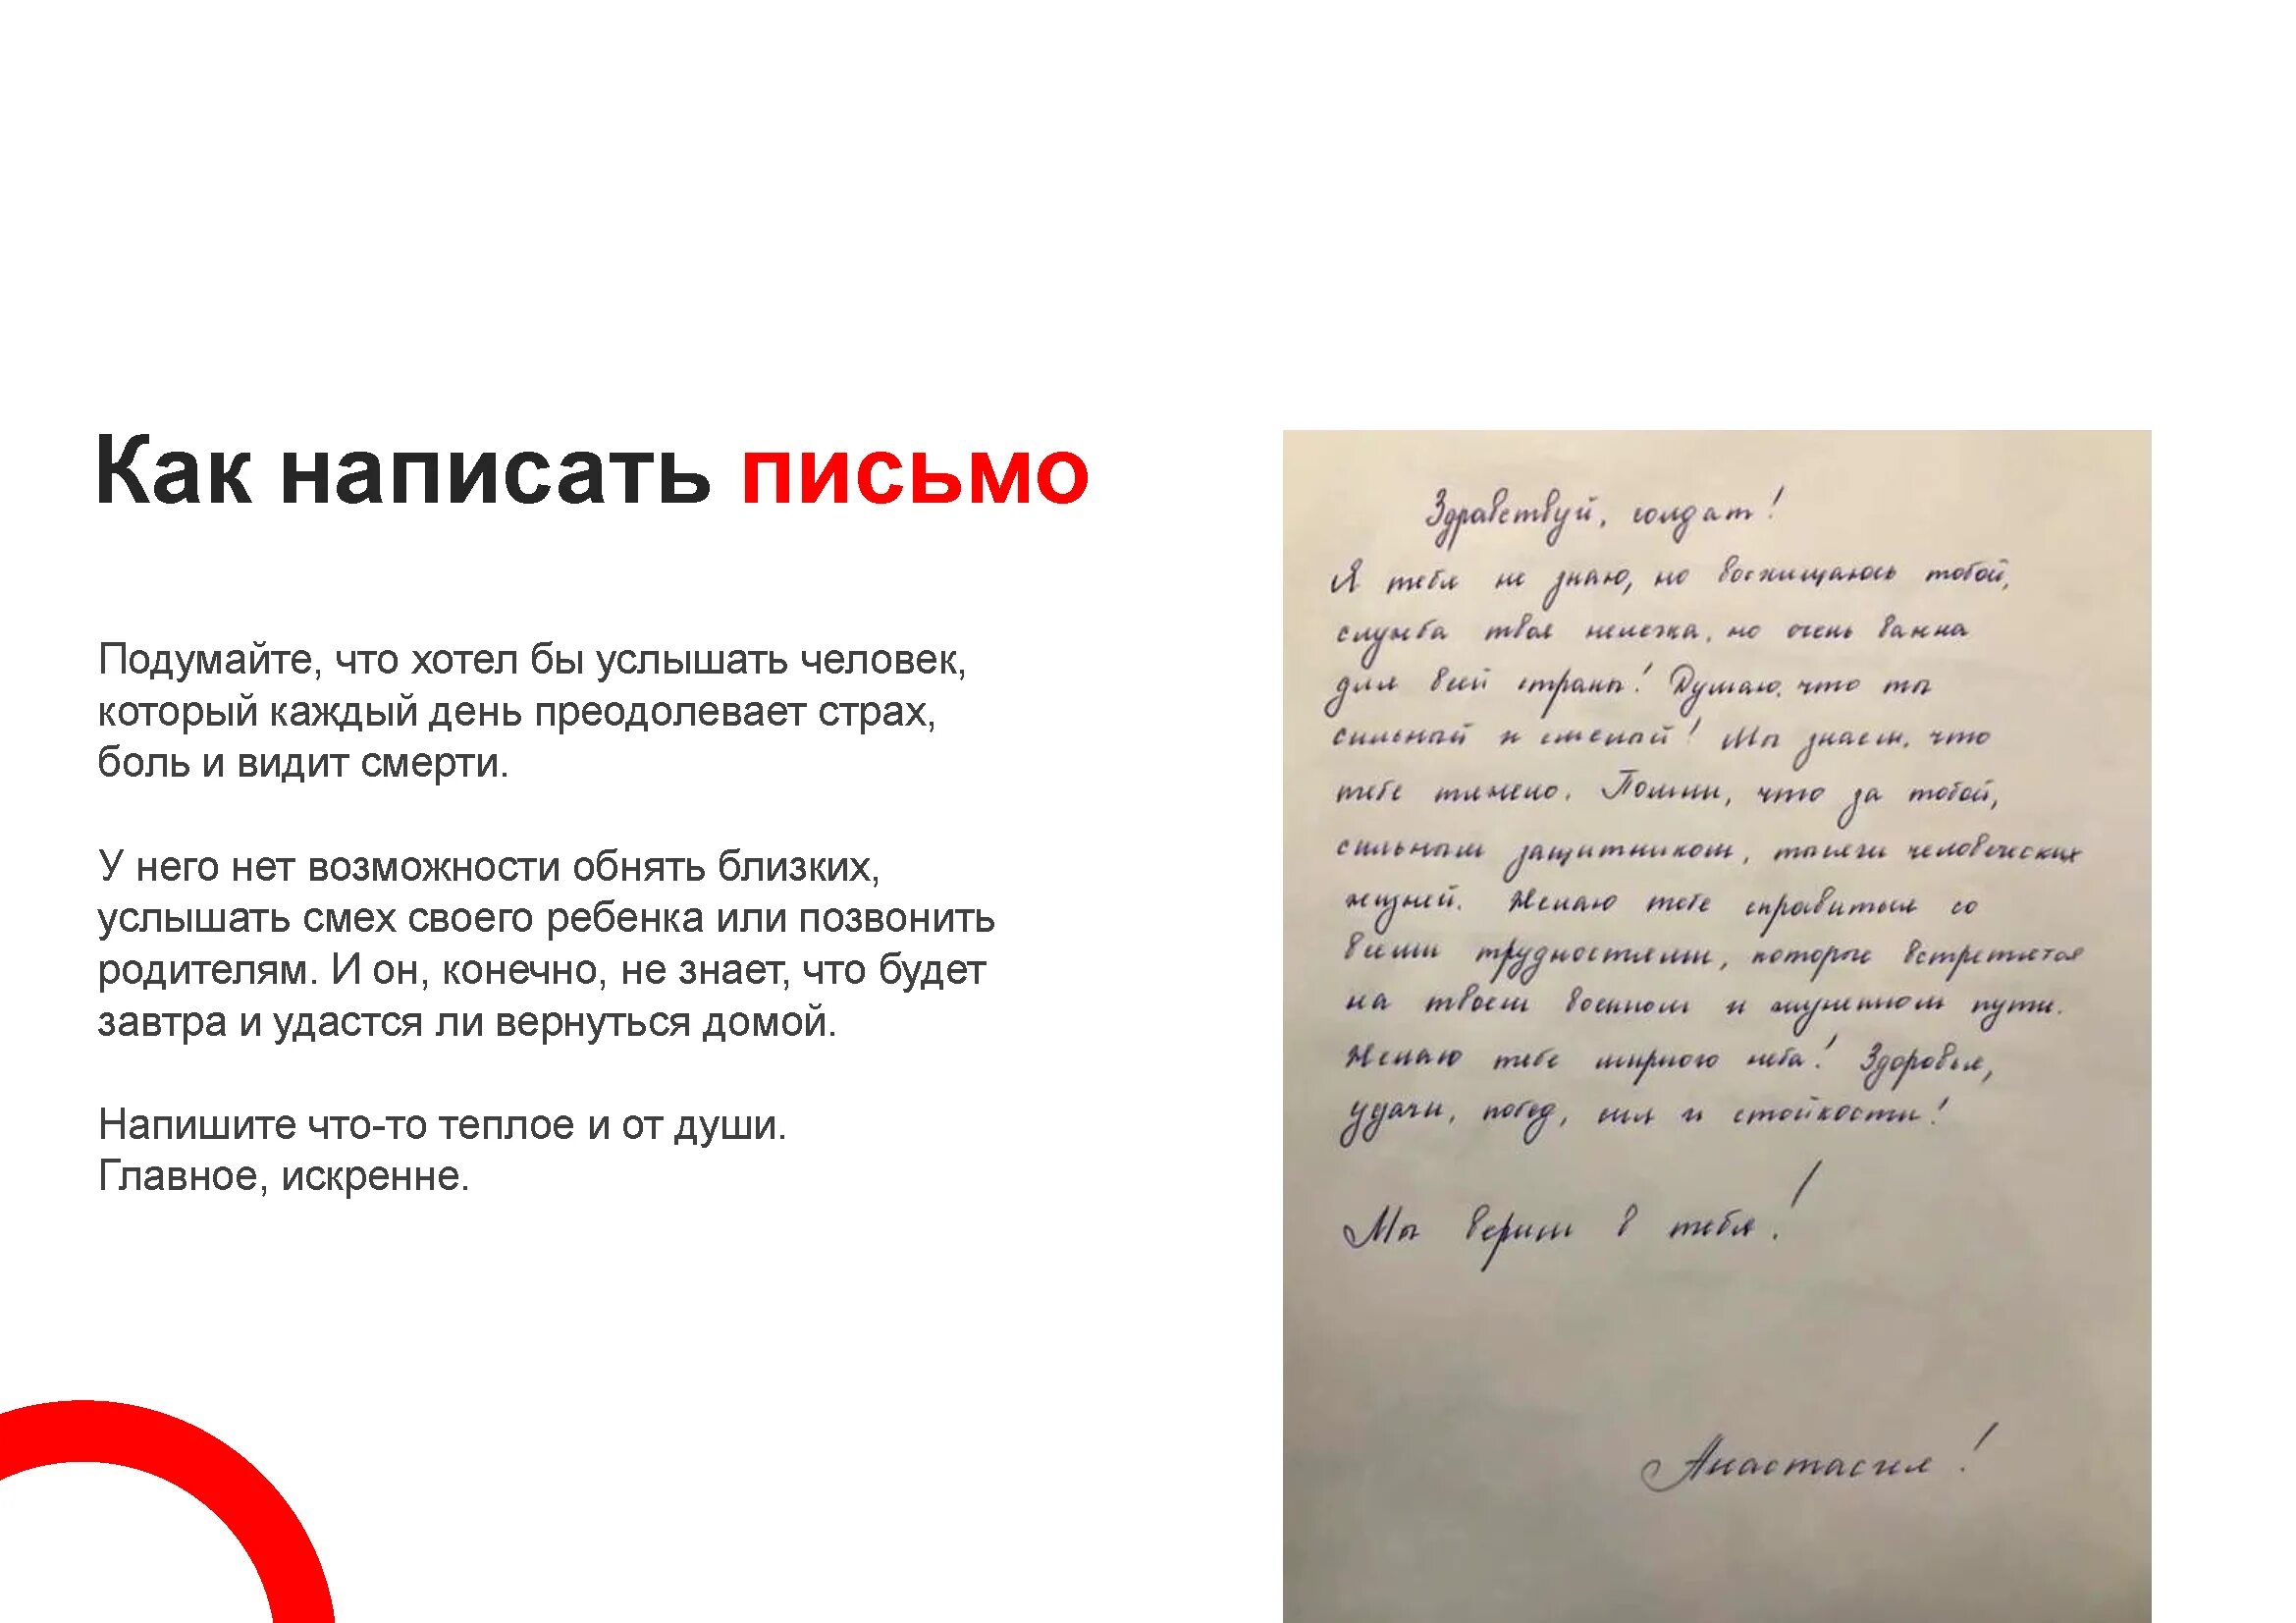 Как написать письмо
Подумайте, что хотел бы услышать человек,
который каждый день преодолевает страх,
боль и видит смерти.
У него нет возможности обнять близких,
услышать смех своего ребенка или позвонить
родителям. И он, конечно, не знает, что будет
завтра и удастся ли вернуться домой.
Напишите что-то теплое и от души.
Главное, искренне.
Здравствуй, солдат!
Я тебя не знаю, но восхищаюсь тобой,
служба твоя нелегка, но очень важна
для всей страны! Думаю, что ты
сильный и смелый! Мы знаем, что
тебе тяжело. Помни, что за тобой,
сильным защитником, тысячи человеческих
жизней. Желаю тебе справиться со
всеми трудностями, которые встретятся
на твоем военном и жизненном пути.
Желаю тебе мирного неба! Здоровья,
удачи, побед, сил и стойкости!
Мы верим в тебя!
Анастасия!